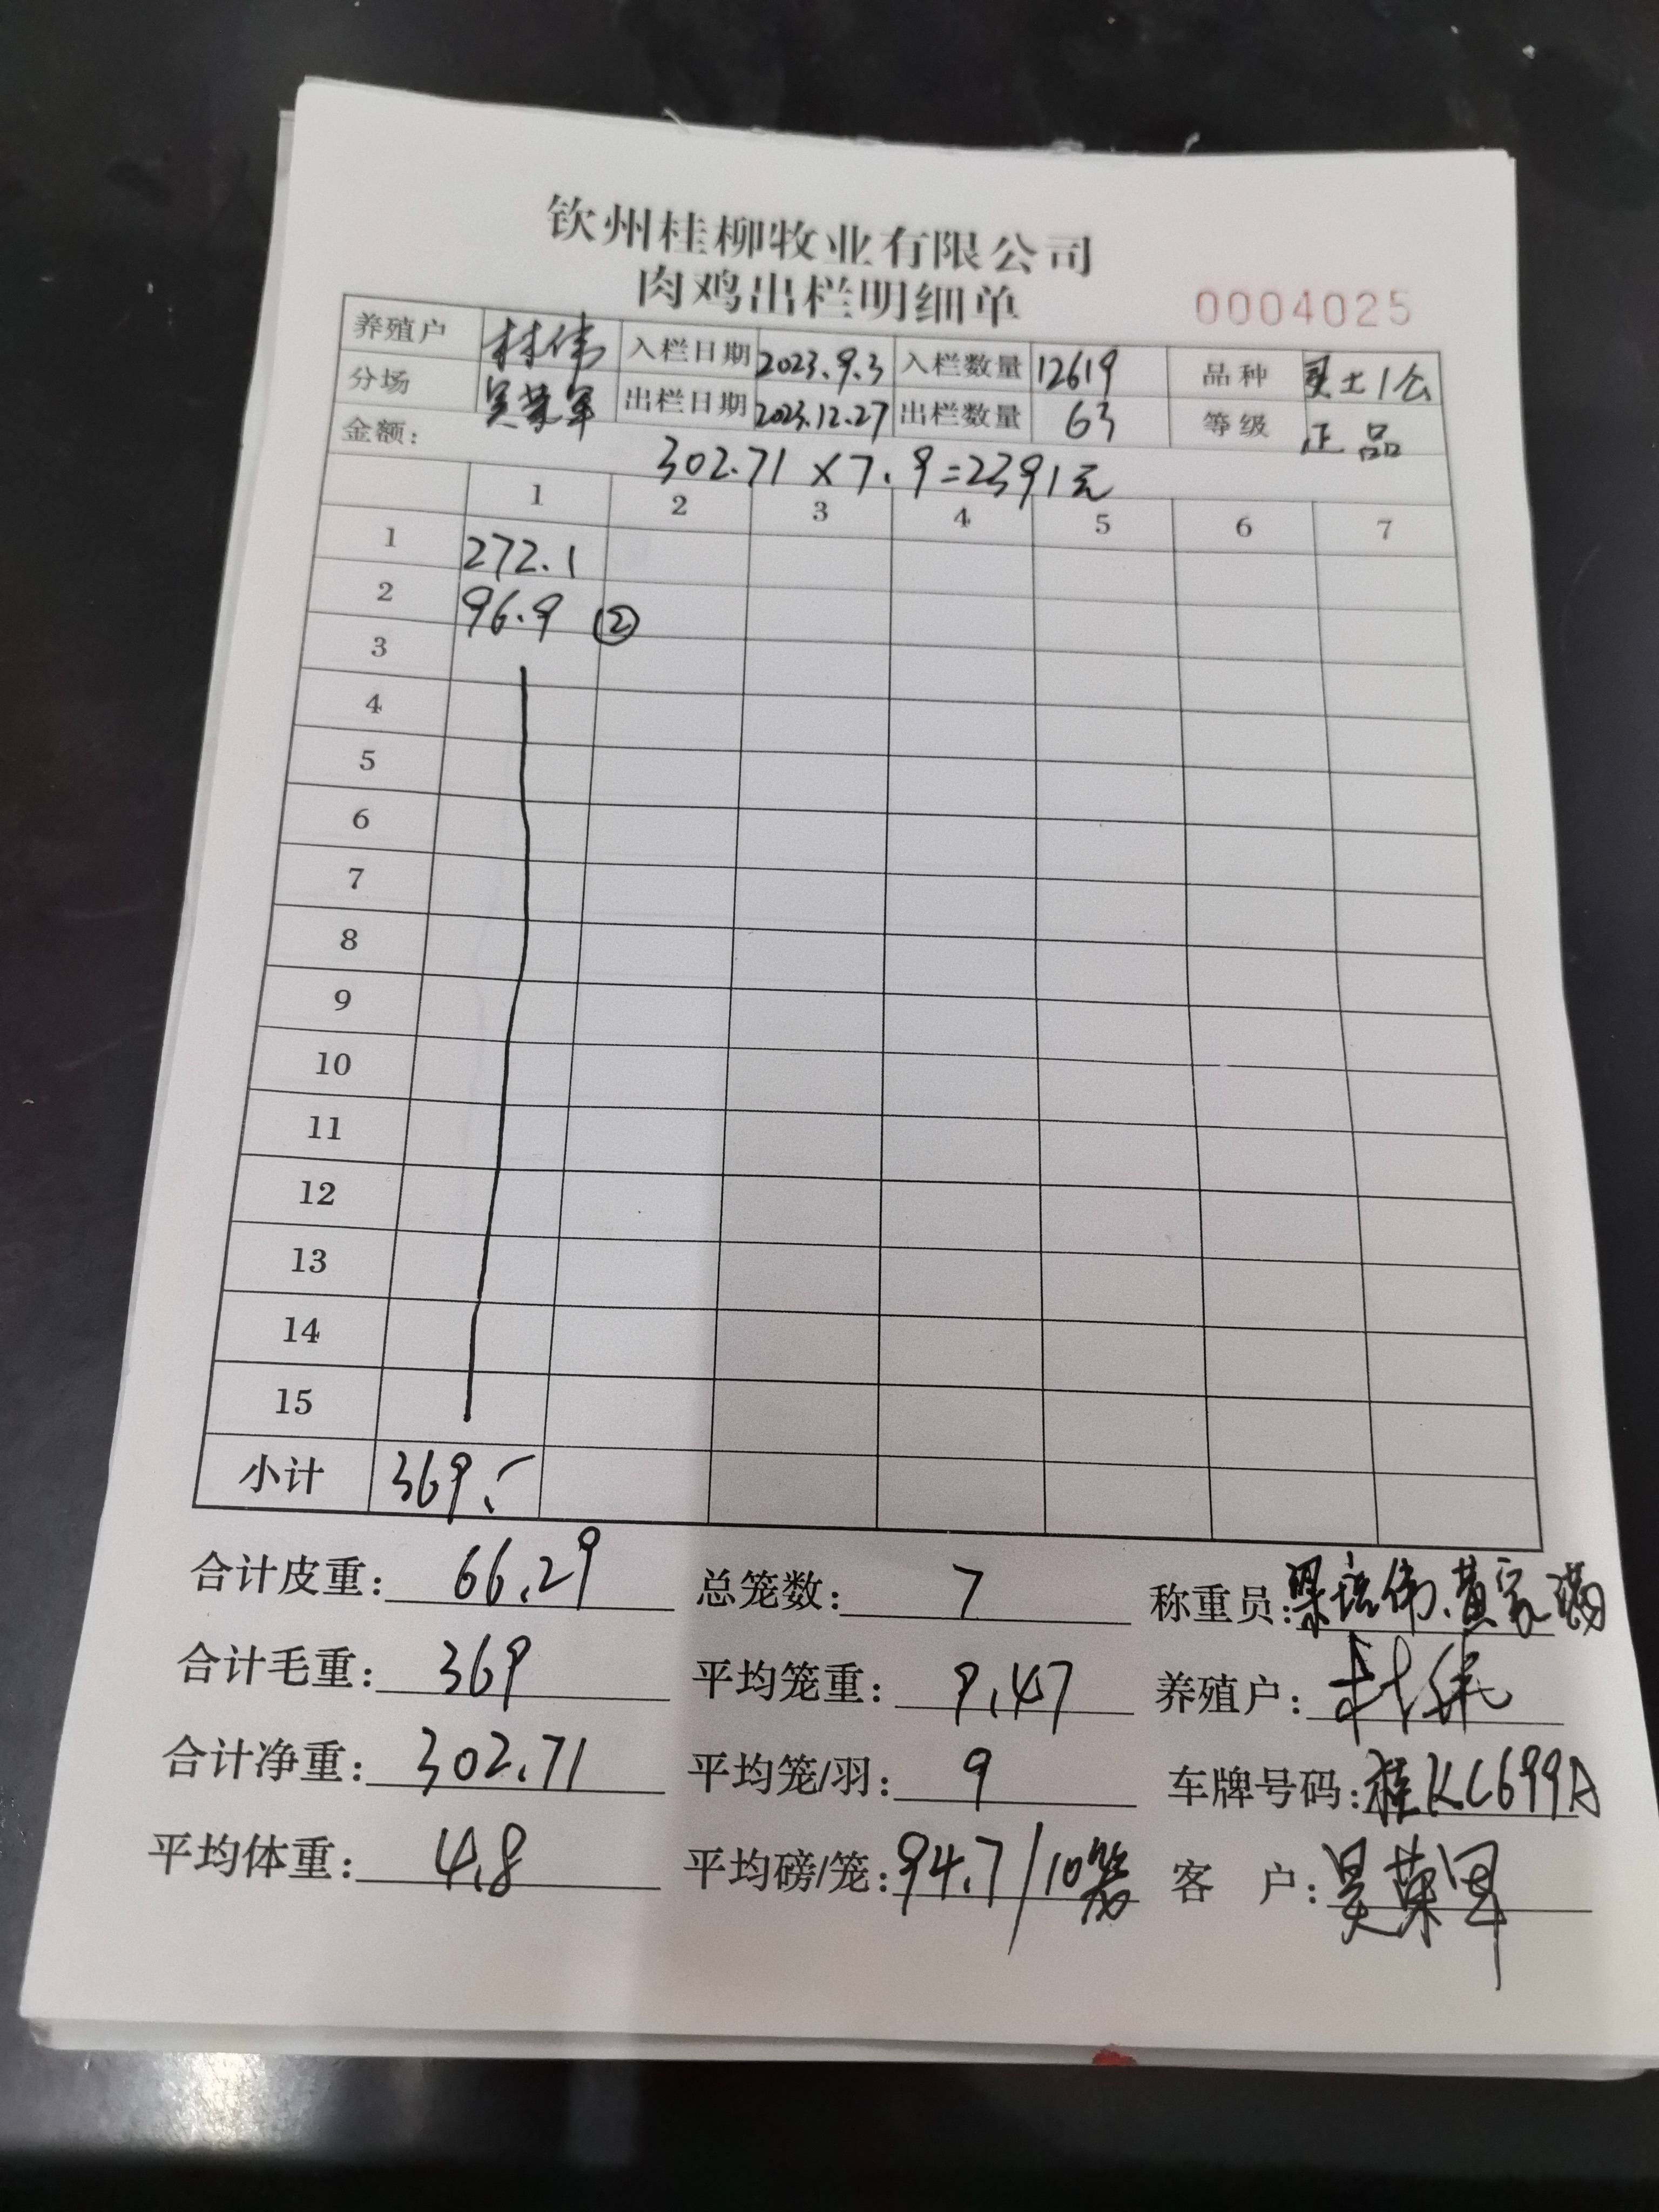 钦州桂柳牧业有限公司
肉鸡出栏明细单 0004025
养殖户 林伟 入栏日期 2023.9.3 入栏数量 12619 品种 土1公
分场 吴荣军 出栏日期 2023.12.27 出栏数量 63 等级 正品
金额: 302.71×7.9=2391元
1 2 3 4 5 6 7
1 272.1
2 96.9 ②
3
4
5
6
7
8
9
10
11
12
13
14
15
小计 369.-
合计皮重: 66.29 总笼数: 7 称重员: 梁培伟、黄家满
合计毛重: 369 平均笼重: 9.47 养殖户: 林伟
合计净重: 302.71 平均笼/羽: 9 车牌号码: 桂KC699A
平均体重: 4.8 平均磅/笼: 94.7/10笼 客 户: 吴荣军